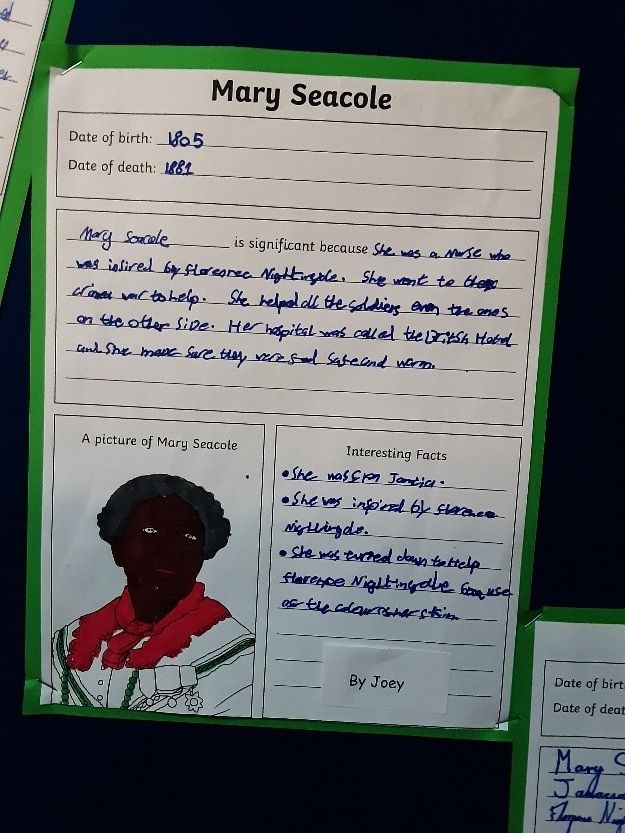 Mary Seacole
Date of birth: 1805
Date of death: 1881
Mary Seacole is significant because She was a Nurse who
was insired by florenec Nightingale. She went to the
crimea war to help. She helped all the soldiers even the ones
on the other Side. Her hospital was called the British Hotel
and She made Sure they were safe and warm.
A picture of Mary Seacole
Interesting Facts
• She was from Jamica.
• She was inspired by florence
Nightingale.
• She was turned down to help
florence Nightingale because
of the colour of her skin.
By Joey
Date of birt
Date of deat
Mary S